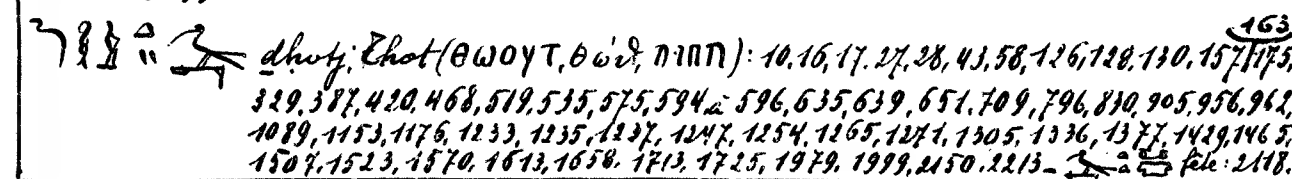 163
dhotj, Thot (ⲑⲱⲟⲩⲧ, θώθ, תחות): 10.16,17.27,28,43,58,126,128,130,157,175,
329,387,420,468,519,535,575,594 à 596,635,639,651.709,796,830,905,956,962,
1089,1153,1176,1233,1235,1237,1247,1254,1265,1271,1305,1336,1377,1429,1465,
1507,1523,1570,1613,1658,1713,1725,1979,1999,2150,2213 - fête: 2118.